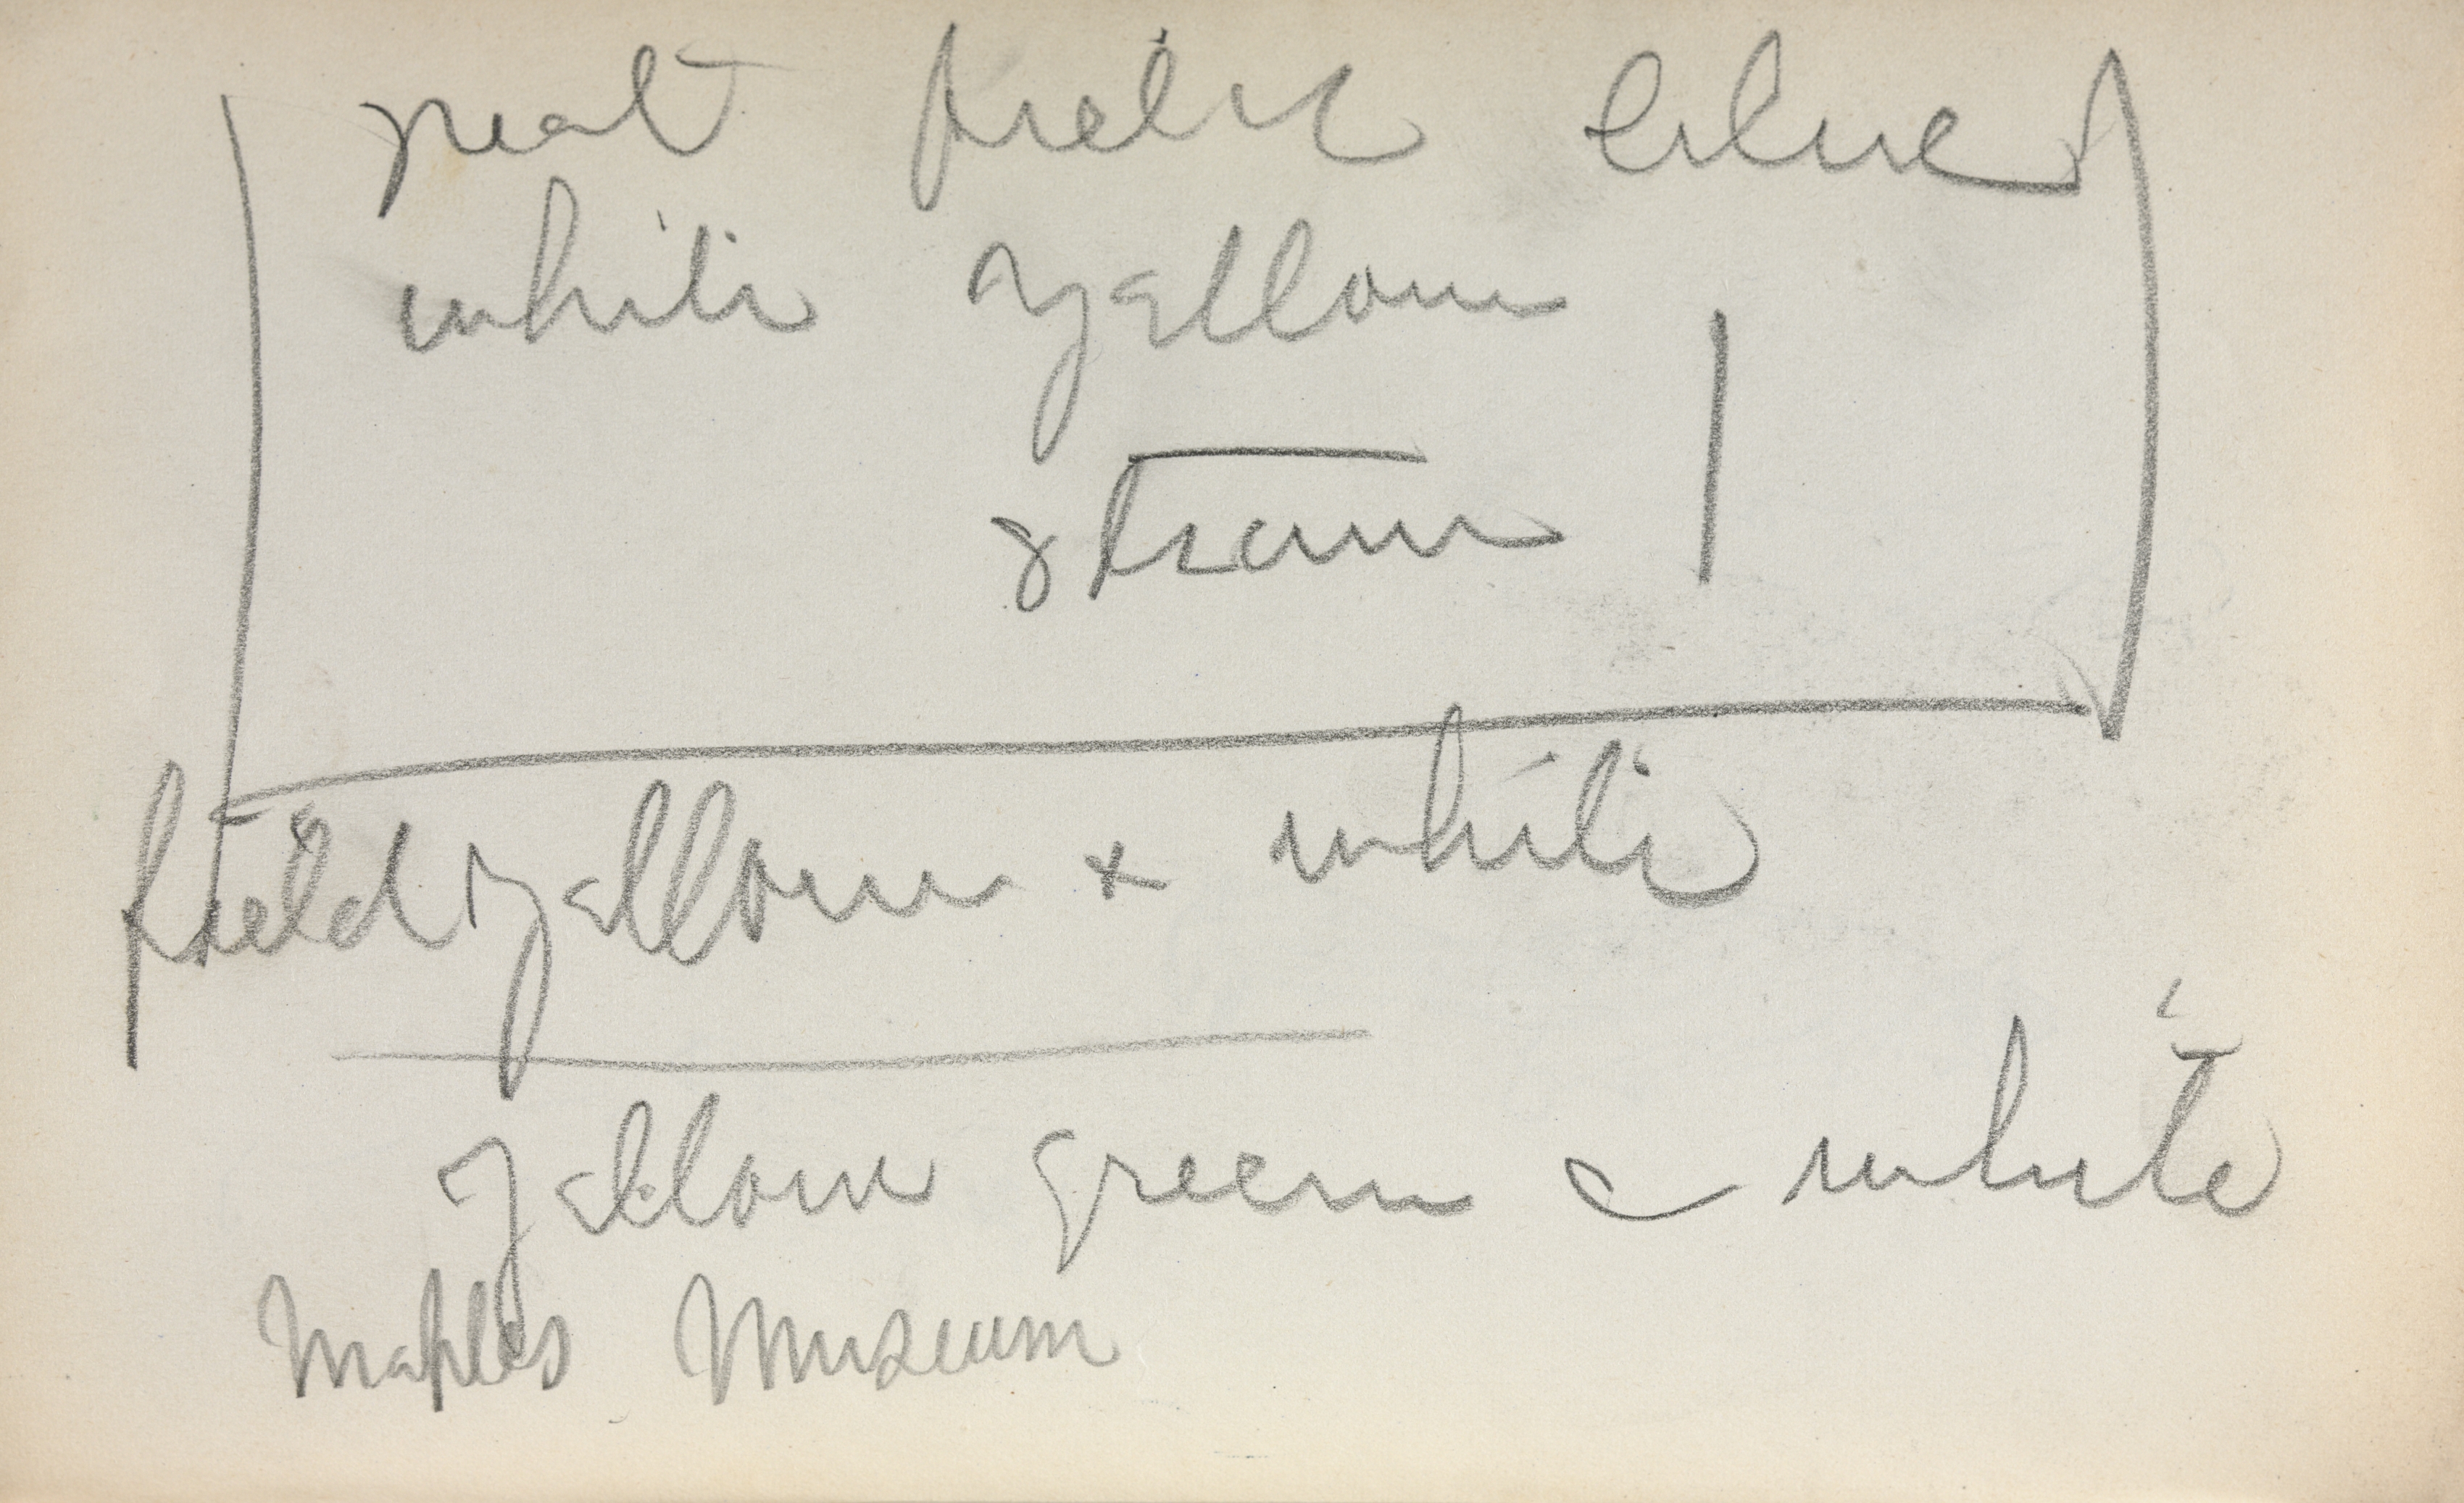 field blue
white yellow
field yellow + white
yellow green & white
Naples Museum